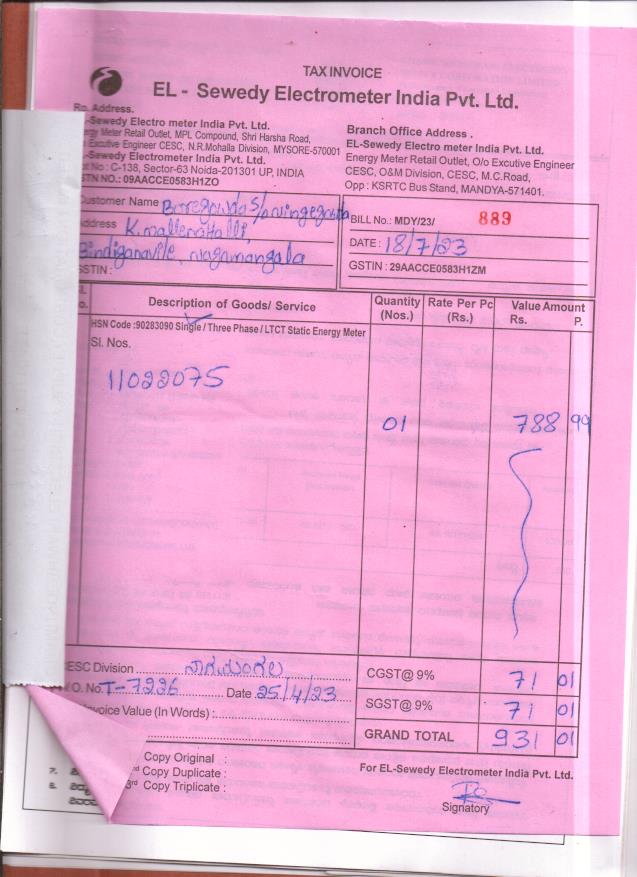 TAX INVOICE
EL - Sewedy Electrometer India Pvt. Ltd.
Rg. Address.
EL-Sewedy Electro meter India Pvt. Ltd.
Energy Meter Retail Outlet, MPL Compound, Shri Harsha Road,
Executive Engineer CESC, N.R.Mohalla Division, MYSORE-570001
EL-Sewedy Electrometer India Pvt. Ltd.
No : C-138, Sector-63 Noida-201301 UP, INDIA
GSTN NO.: 09AACCE0583H1ZO
Branch Office Address .
EL-Sewedy Electro meter India Pvt. Ltd.
Energy Meter Retail Outlet, O/o Excutive Engineer
CESC, O&M Division, CESC, M.C.Road,
Opp : KSRTC Bus Stand, MANDYA-571401.
Customer Name
Address K.mallenahalli,
Bindiganavile, nagamangala
GSTIN :
BILL No.: MDY/23/ 889
DATE : 18/7/23
GSTIN : 29AACCE0583H1ZM
Description of Goods/ Service Quantity (Nos.) Rate Per Pc (Rs.) Value Amount Rs. P.
HSN Code :90283090 Single / Three Phase / LTCT Static Energy Meter
Sl. Nos.
11022075
01 788 99
CESC Division ನಾಗಮಂಗಲ
O. No. T-7226 Date 25/4/23
Invoice Value (In Words) :
CGST@ 9% 71 01
SGST@ 9% 71 01
GRAND TOTAL 931 01
Copy Original :
Copy Duplicate :
3rd Copy Triplicate :
For EL-Sewedy Electrometer India Pvt. Ltd.
Signatory